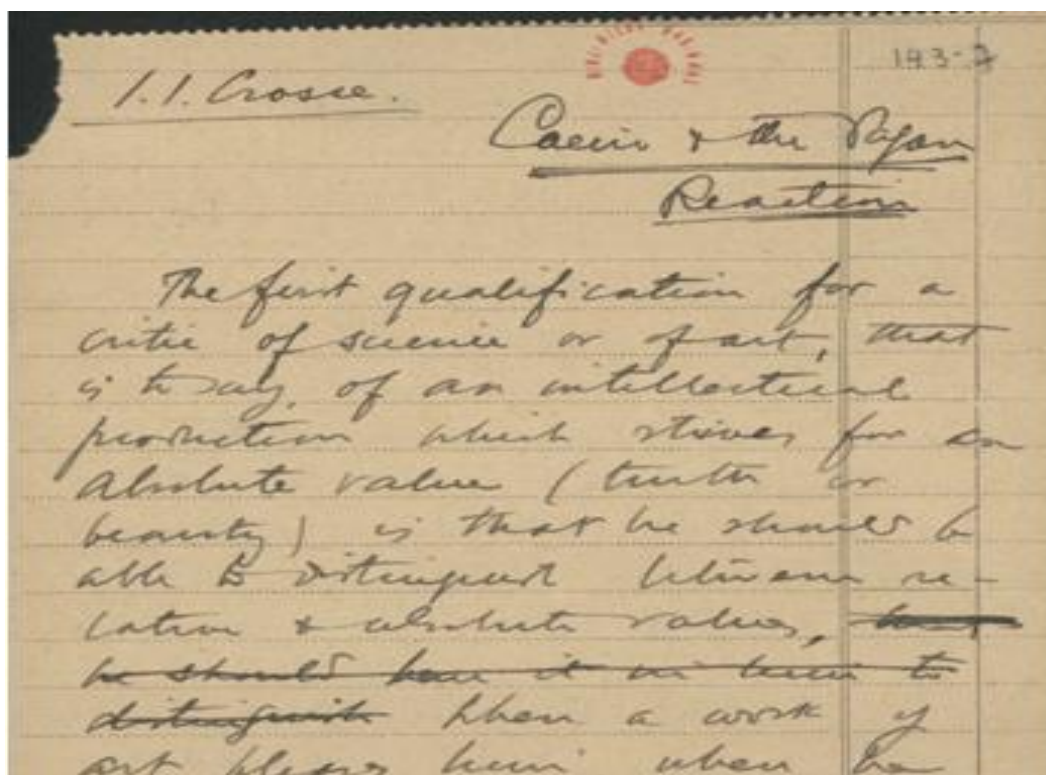 I. I. Crosse.
143-7
Caeiro & the Pagan
Reaction
The first qualification for a
critic of science or of art, that
is to say, of an intellectual
production which strives for an
absolute value (truth or
beauty) is that he should be
able to distinguish between re-
lative & absolute values,
he should have it in him to
distinguish When a work of
art pleases him when he